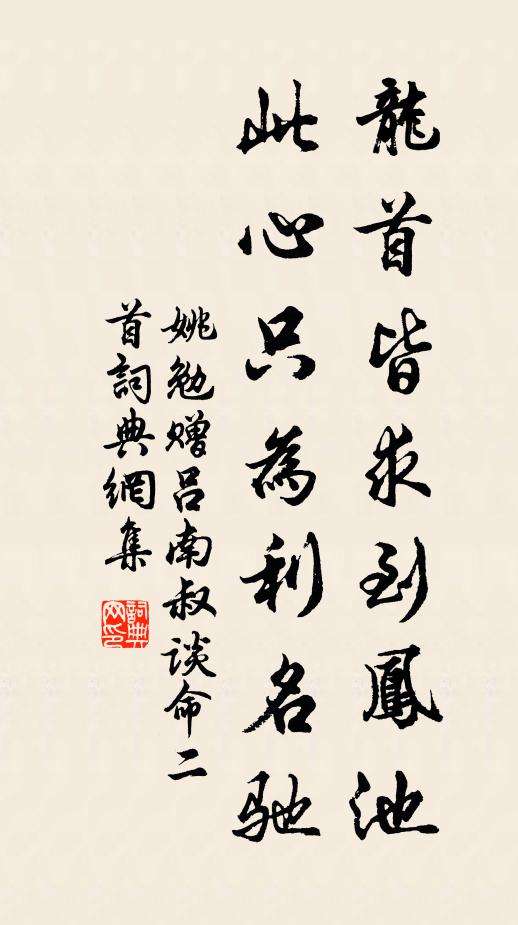 龍首皆求到鳳池
此心只為利名馳
姚勉赠吕南叔談命二
首詞典網集
詞典
网印